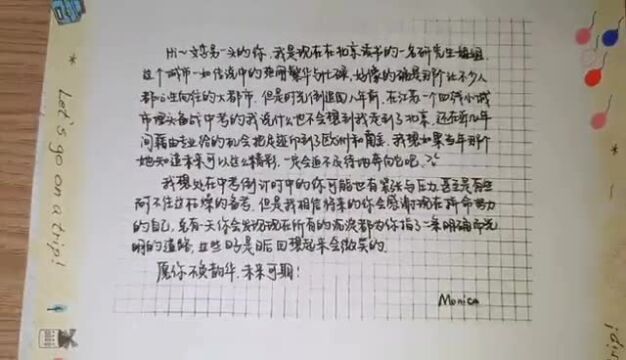 Hi~ 文字另一头的你,我是现在在北京读书的一名研究生姐姐.
这个城市一如传说中的热闹繁华与忙碌,好像的确是那个让不少人
都心生向往的大都市,但是时光倒退回八年前,在江苏一个四线小城
市埋头备战中考的我说什么也不会想到我走到了北京,还在前几年
间藉由专业给的机会把足迹印到了欧洲和南美,我想如果当年那个
她知道未来可以这么精彩,一定会迫不及待地奔向它吧.
我想处在中考倒计时中的你可能也有紧张与压力,甚至是有些
耐不住这枯燥的备考,但是我相信将来的你会感谢现在拼命努力
的自己,总有一天你会发现现在所有的流浪都为你指了一条明确而光
明的道路,这些日子是日后回想起来会微笑的.
愿你不负韶华,未来可期!
Monica
Let's go on a trip!